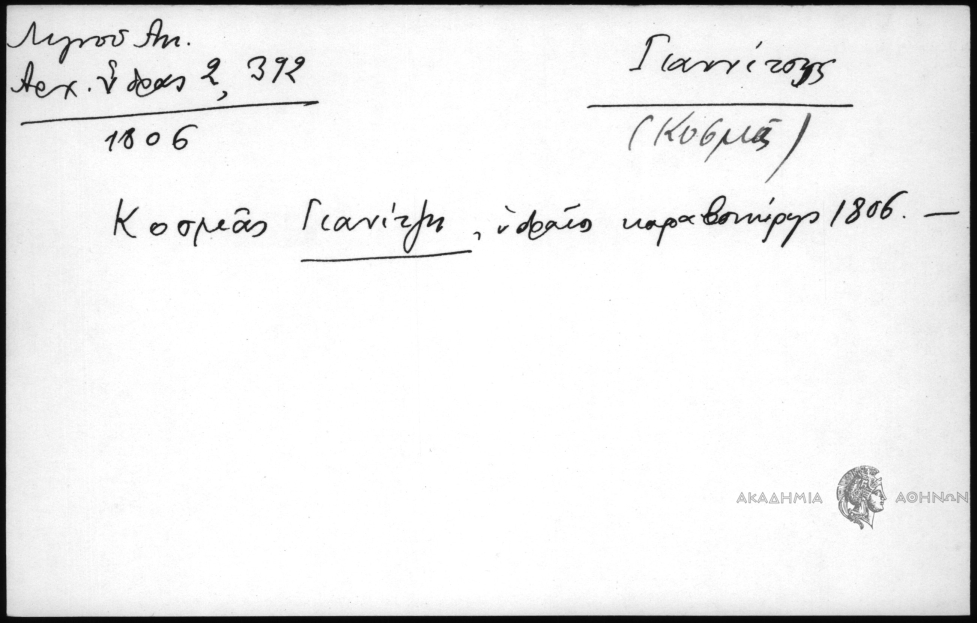 Λιγνοῦ Αν.
Αρχ. Ὕδρας 2, 392
1806
Γιαννίτσης
(Κοσμᾶς)
Κοσμᾶς Γιανίτζη, ὑδραῖος καραβοκύρης 1806. —
ΑΚΑΔΗΜΙΑ ΑΘΗΝΩΝ